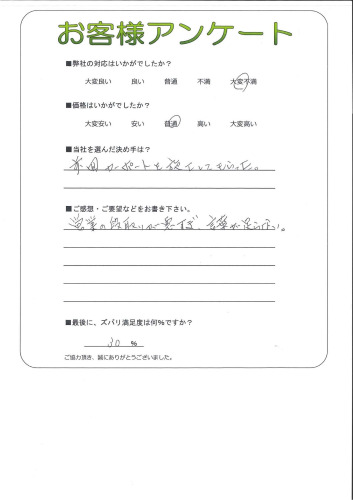 お客様アンケート
■弊社の対応はいかがでしたか?
大変良い 良い 普通 不満 大変不満
■価格はいかがでしたか?
大変安い 安い 普通 高い 大変高い
■当社を選んだ決め手は?
前回カーポートを設置してもらった。
■ご感想・ご要望などをお書き下さい。
営業の段取りが悪すぎ、言葉が足らない。
■最後に、ズバリ満足度は何%ですか?
30 %
ご協力頂き、誠にありがとうございました。